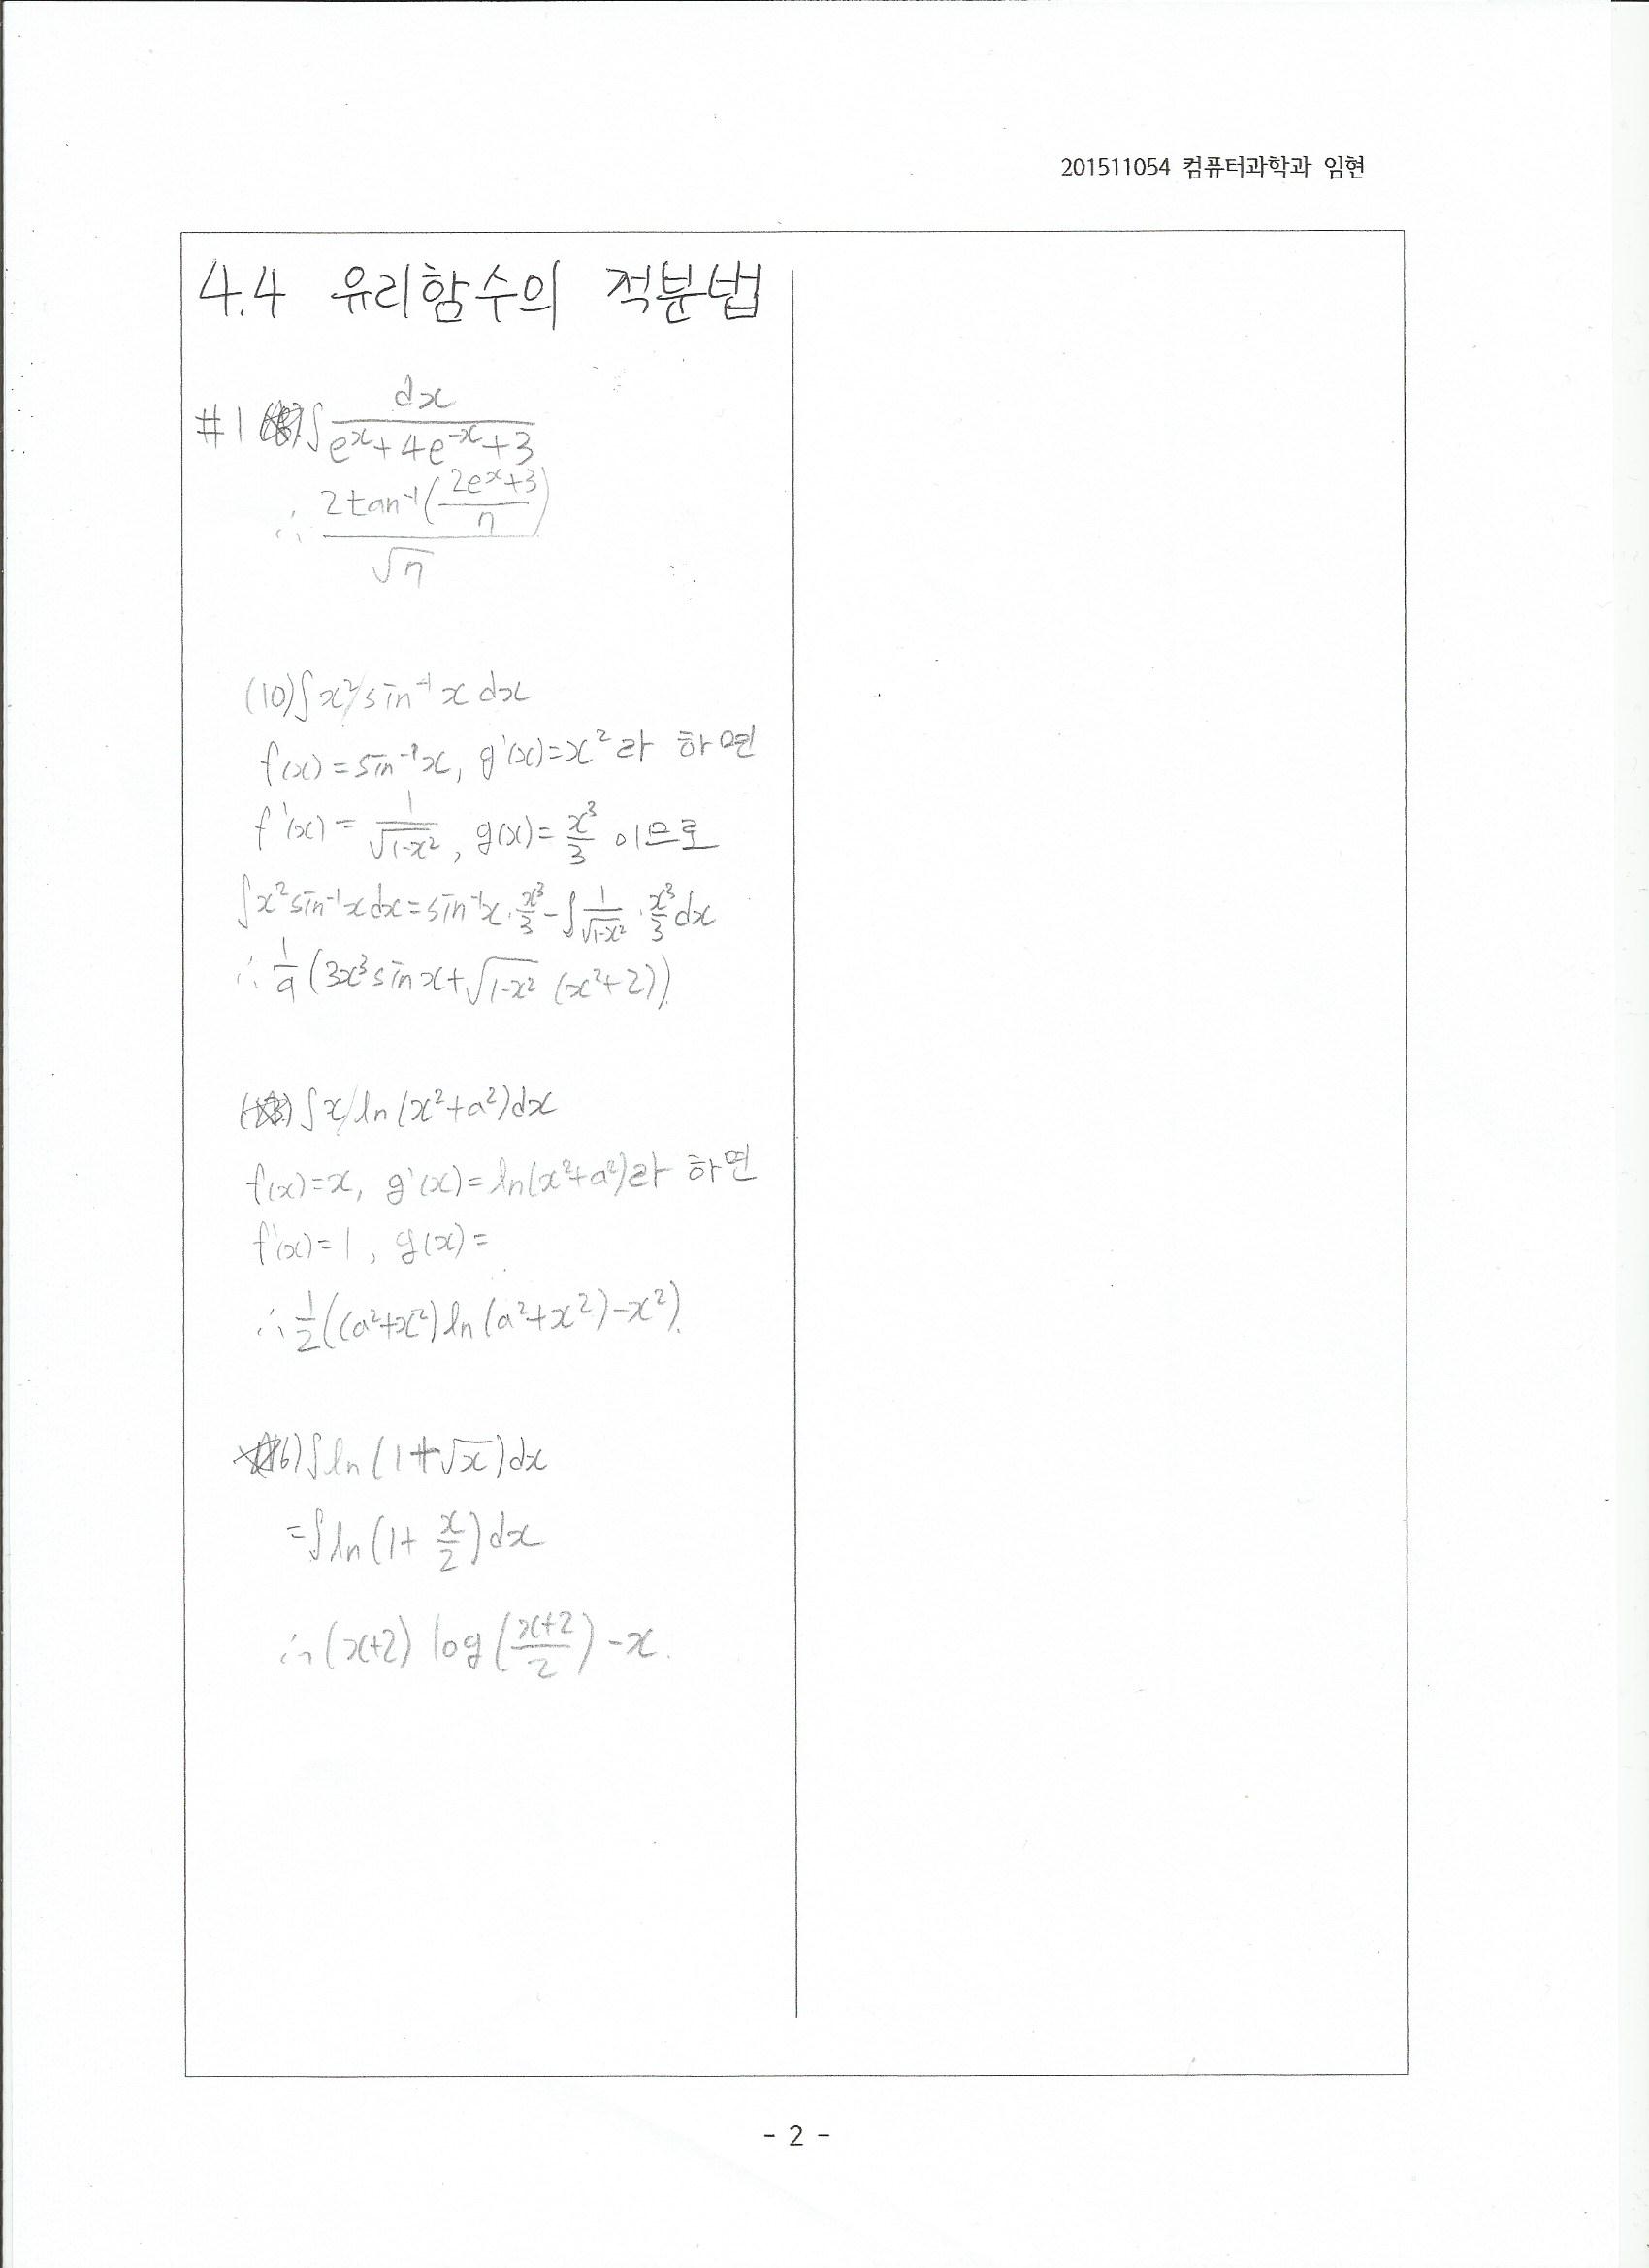 201511054 컴퓨터과학과 임현
4.4 유리함수의 적분법
#1 ∫ dx/(e^x+4e^-x+3)
∴ 2tan^-1((2e^x+3)/η)/√η
(10) ∫x²sin^-1 x dx
f(x)=sin^-1 x, g'(x)=x²라 하면
f'(x)=1/√(1-x²), g(x)=x³/3 이므로
∫x²sin^-1 x dx=sin^-1 x·x³/3-∫1/√(1-x²)·x³/3 dx
∴ 1/9(3x³sin x+√(1-x²)(x²+2))
∫x ln(x²+a²)dx
f(x)=x, g'(x)=ln(x²+a²)라 하면
f'(x)=1, g(x)=
∴ 1/2((a²+x²)ln(a²+x²)-x²)
16) ∫ln(1+√x)dx
=∫ln(1+x/2)dx
∴(x+2) log((x+2)/2)-x.
- 2 -